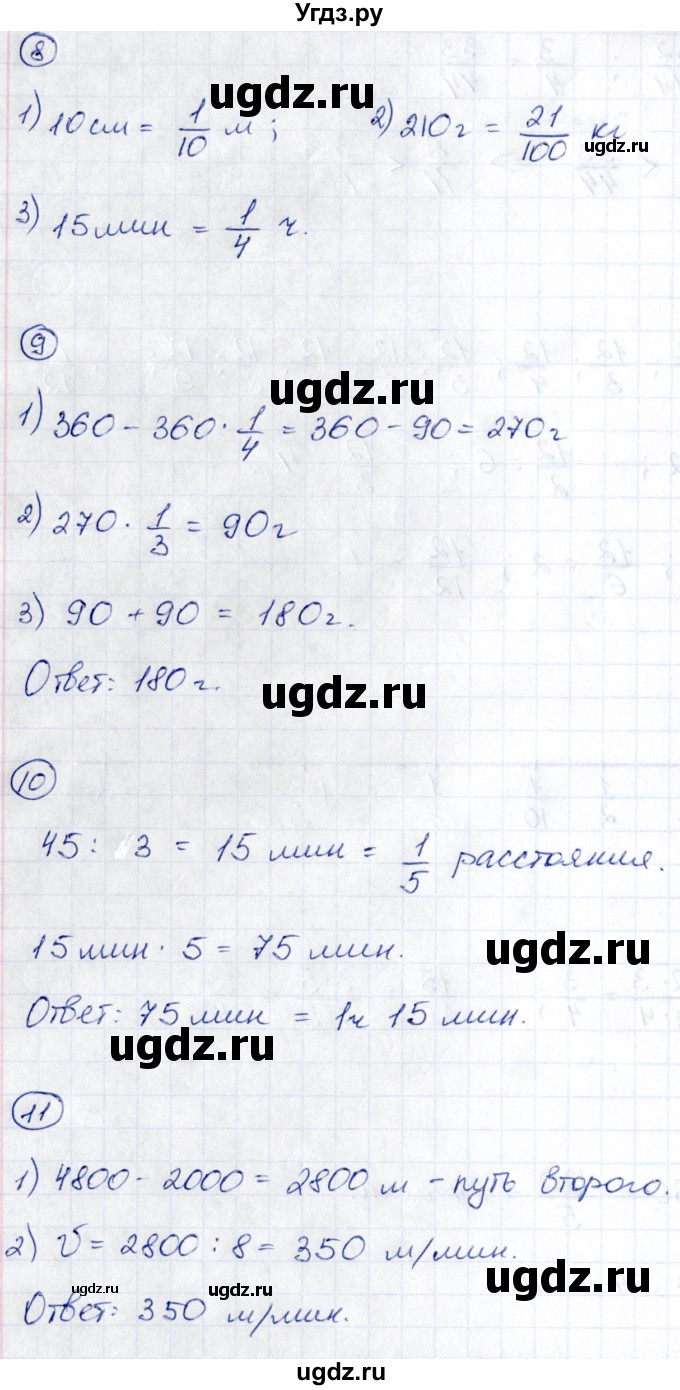 Угдз.ру
ugdz.ru
8
1) 10 см = 1/10 м; 2) 210 г = 21/100 кг
ugdz.ru
3) 15 мин = 1/4 ч.
9
ugdz.ru
1) 360 - 360 · 1/4 = 360 - 90 = 270 г
2) 270 · 1/3 = 90 г
ugdz.ru
3) 90 + 90 = 180 г.
Ответ: 180 г.
ugdz.ru
10
45 : 3 = 15 мин = 1/5 расстояния.
15 мин · 5 = 75 мин.
ugdz.ru
Ответ: 75 мин = 1 ч 15 мин.
ugdz.ru
11
1) 4800 - 2000 = 2800 м - путь второго.
2) V = 2800 : 8 = 350 м/мин.
ugdz.ru
ugdz.ru
ugdz.ru
Ответ: 350 м/мин.
ugdz.ru